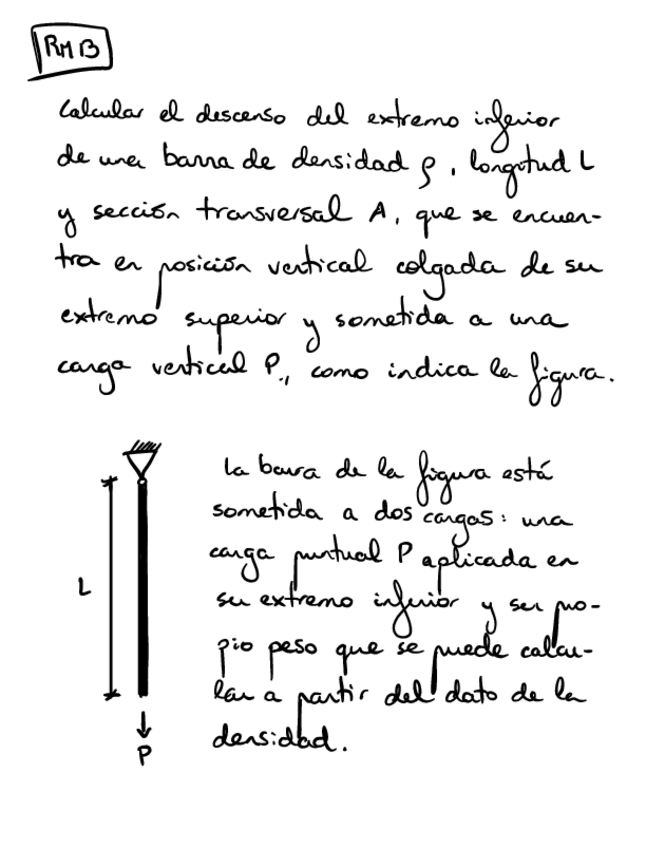 RMB
Calcular el descenso del extremo inferior
de una barra de densidad ρ, longitud L
y sección transversal A, que se encuen-
tra en posición vertical colgada de su
extremo superior y sometida a una
carga vertical P, como indica la figura.
La barra de la figura está
sometida a dos cargas: una
carga puntual P aplicada en
su extremo inferior y su pro-
pio peso que se puede calcu-
lar a partir del dato de la
densidad.
L
P